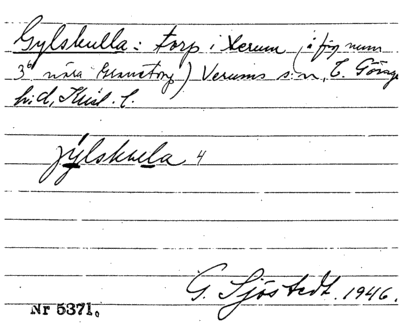 Gylskulla: torp i Xerum (å fig num
3b nära Granetorp) Verums s:n, V. Göinge
hd, Krist. l.
jýlskula 4
G. Sjöstedt. 1946.
Nr 5371.